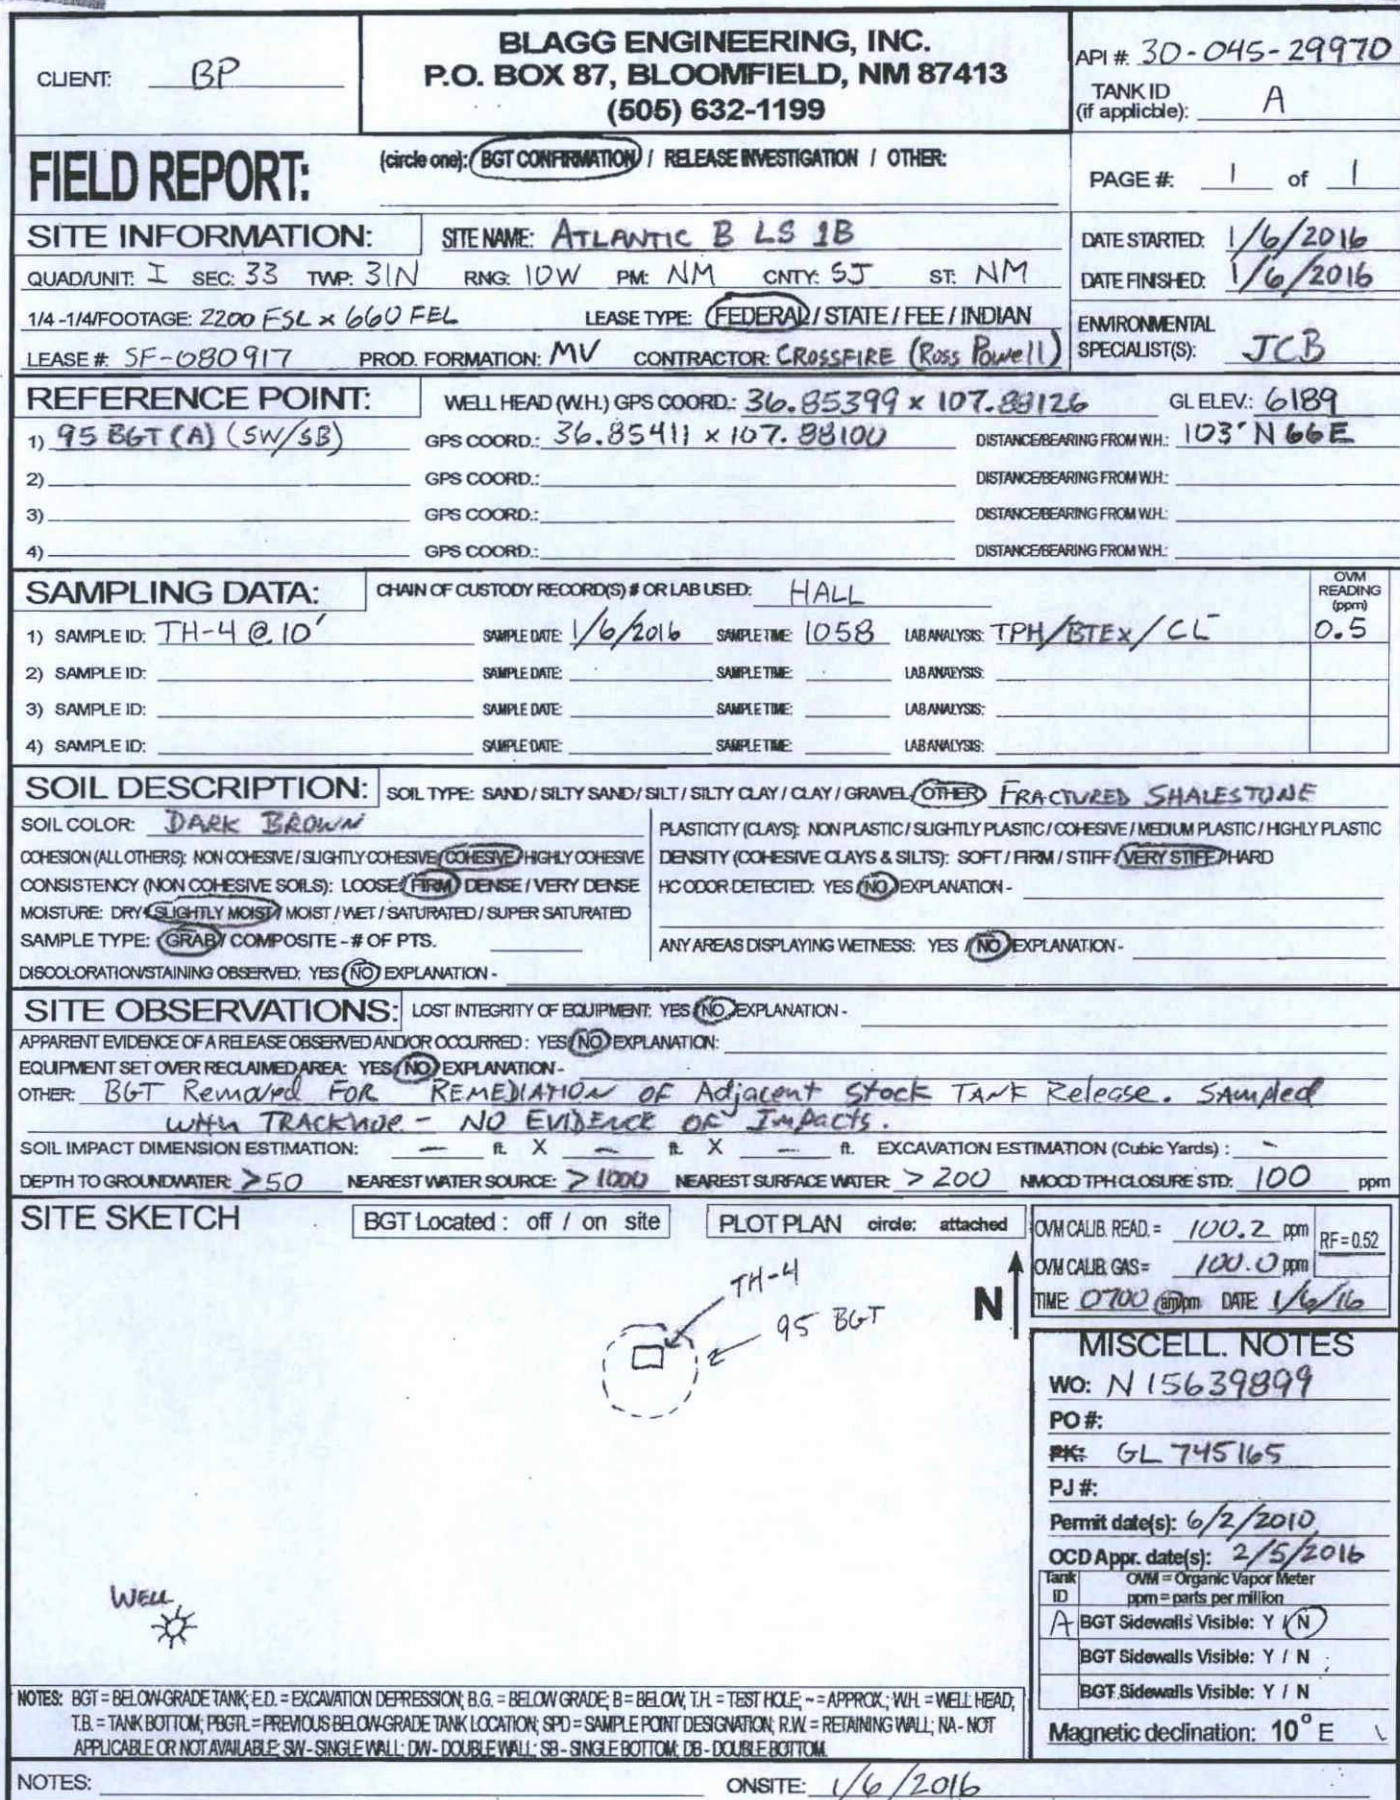 CLIENT: BP
BLAGG ENGINEERING, INC.
P.O. BOX 87, BLOOMFIELD, NM 87413
(505) 632-1199
API #: 30-045-29970
TANK ID
(if applicble): A
FIELD REPORT:
(circle one): BGT CONFIRMATION / RELEASE INVESTIGATION / OTHER:
PAGE #: 1 of 1
SITE INFORMATION: SITE NAME: ATLANTIC B LS 1B
DATE STARTED: 1/6/2016
QUAD/UNIT: I SEC: 33 TWP: 31N RNG: 10W PM: NM CNTY: SJ ST: NM
DATE FINISHED: 1/6/2016
1/4-1/4/FOOTAGE: 2200 FSL x 660 FEL LEASE TYPE: FEDERAL / STATE / FEE / INDIAN
LEASE #: SF-080917 PROD. FORMATION: MV CONTRACTOR: CROSSFIRE (Ross Powell)
ENVIRONMENTAL
SPECIALIST(S): JCB
REFERENCE POINT: WELL HEAD (W.H.) GPS COORD.: 36.85399 x 107.88126 GL ELEV.: 6189
1) 95 BGT (A) (SW/SB) GPS COORD.: 36.85411 x 107.88100 DISTANCE/BEARING FROM W.H.: 103' N66E
2) GPS COORD.: DISTANCE/BEARING FROM W.H.:
3) GPS COORD.: DISTANCE/BEARING FROM W.H.:
4) GPS COORD.: DISTANCE/BEARING FROM W.H.:
SAMPLING DATA: CHAIN OF CUSTODY RECORD(S) # OR LAB USED: HALL
OVM
READING
(ppm)
1) SAMPLE ID: TH-4 @ 10' SAMPLE DATE: 1/6/2016 SAMPLE TIME: 1058 LAB ANALYSIS: TPH/BTEX/CL- 0.5
2) SAMPLE ID: SAMPLE DATE: SAMPLE TIME: LAB ANALYSIS:
3) SAMPLE ID: SAMPLE DATE: SAMPLE TIME: LAB ANALYSIS:
4) SAMPLE ID: SAMPLE DATE: SAMPLE TIME: LAB ANALYSIS:
SOIL DESCRIPTION: SOIL TYPE: SAND / SILTY SAND / SILT / SILTY CLAY / CLAY / GRAVEL / OTHER FRACTURED SHALESTONE
SOIL COLOR: DARK BROWN
PLASTICITY (CLAYS): NON PLASTIC / SLIGHTLY PLASTIC / COHESIVE / MEDIUM PLASTIC / HIGHLY PLASTIC
COHESION (ALL OTHERS): NON COHESIVE / SLIGHTLY COHESIVE / COHESIVE / HIGHLY COHESIVE
DENSITY (COHESIVE CLAYS & SILTS): SOFT / FIRM / STIFF / VERY STIFF / HARD
CONSISTENCY (NON COHESIVE SOILS): LOOSE / FIRM / DENSE / VERY DENSE
HC ODOR DETECTED: YES / NO EXPLANATION -
MOISTURE: DRY / SLIGHTLY MOIST / MOIST / WET / SATURATED / SUPER SATURATED
SAMPLE TYPE: GRAB / COMPOSITE - # OF PTS.
ANY AREAS DISPLAYING WETNESS: YES / NO EXPLANATION -
DISCOLORATION/STAINING OBSERVED: YES / NO EXPLANATION -
SITE OBSERVATIONS: LOST INTEGRITY OF EQUIPMENT: YES / NO EXPLANATION -
APPARENT EVIDENCE OF A RELEASE OBSERVED AND/OR OCCURRED : YES / NO EXPLANATION:
EQUIPMENT SET OVER RECLAIMED AREA: YES / NO EXPLANATION -
OTHER: BGT Removed FOR REMEDIATION OF Adjacent Stock TANK Release. Sampled
with TRACKHOE - NO EVIDENCE OF Impacts.
SOIL IMPACT DIMENSION ESTIMATION: — ft. X — ft. X — ft. EXCAVATION ESTIMATION (Cubic Yards) : -
DEPTH TO GROUNDWATER: >50 NEAREST WATER SOURCE: >1000 NEAREST SURFACE WATER: >200 NMOCD TPH CLOSURE STD: 100 ppm
SITE SKETCH BGT Located : off / on site PLOT PLAN circle: attached
OVM CALIB. READ. = 100.2 ppm RF = 0.52
OVM CALIB. GAS = 100.0 ppm
TIME: 0700 am/pm DATE: 1/6/16
TH-4
95 BGT
N
WELL
MISCELL. NOTES
WO: N15639899
PO #:
PK: GL 745165
PJ #:
Permit date(s): 6/2/2010
OCD Appr. date(s): 2/5/2016
Tank ID
OVM = Organic Vapor Meter
ppm = parts per million
A BGT Sidewalls Visible: Y / N
BGT Sidewalls Visible: Y / N
BGT Sidewalls Visible: Y / N
Magnetic declination: 10° E
NOTES: BGT = BELOW-GRADE TANK; E.D. = EXCAVATION DEPRESSION; B.G. = BELOW GRADE; B = BELOW; T.H. = TEST HOLE; ~ = APPROX.; W.H. = WELL HEAD;
T.B. = TANK BOTTOM; PBGTL = PREVIOUS BELOW-GRADE TANK LOCATION; SPD = SAMPLE POINT DESIGNATION; R.W. = RETAINING WALL; NA - NOT
APPLICABLE OR NOT AVAILABLE; SW - SINGLE WALL; DW - DOUBLE WALL; SB - SINGLE BOTTOM; DB - DOUBLE BOTTOM.
NOTES: ONSITE: 1/6/2016